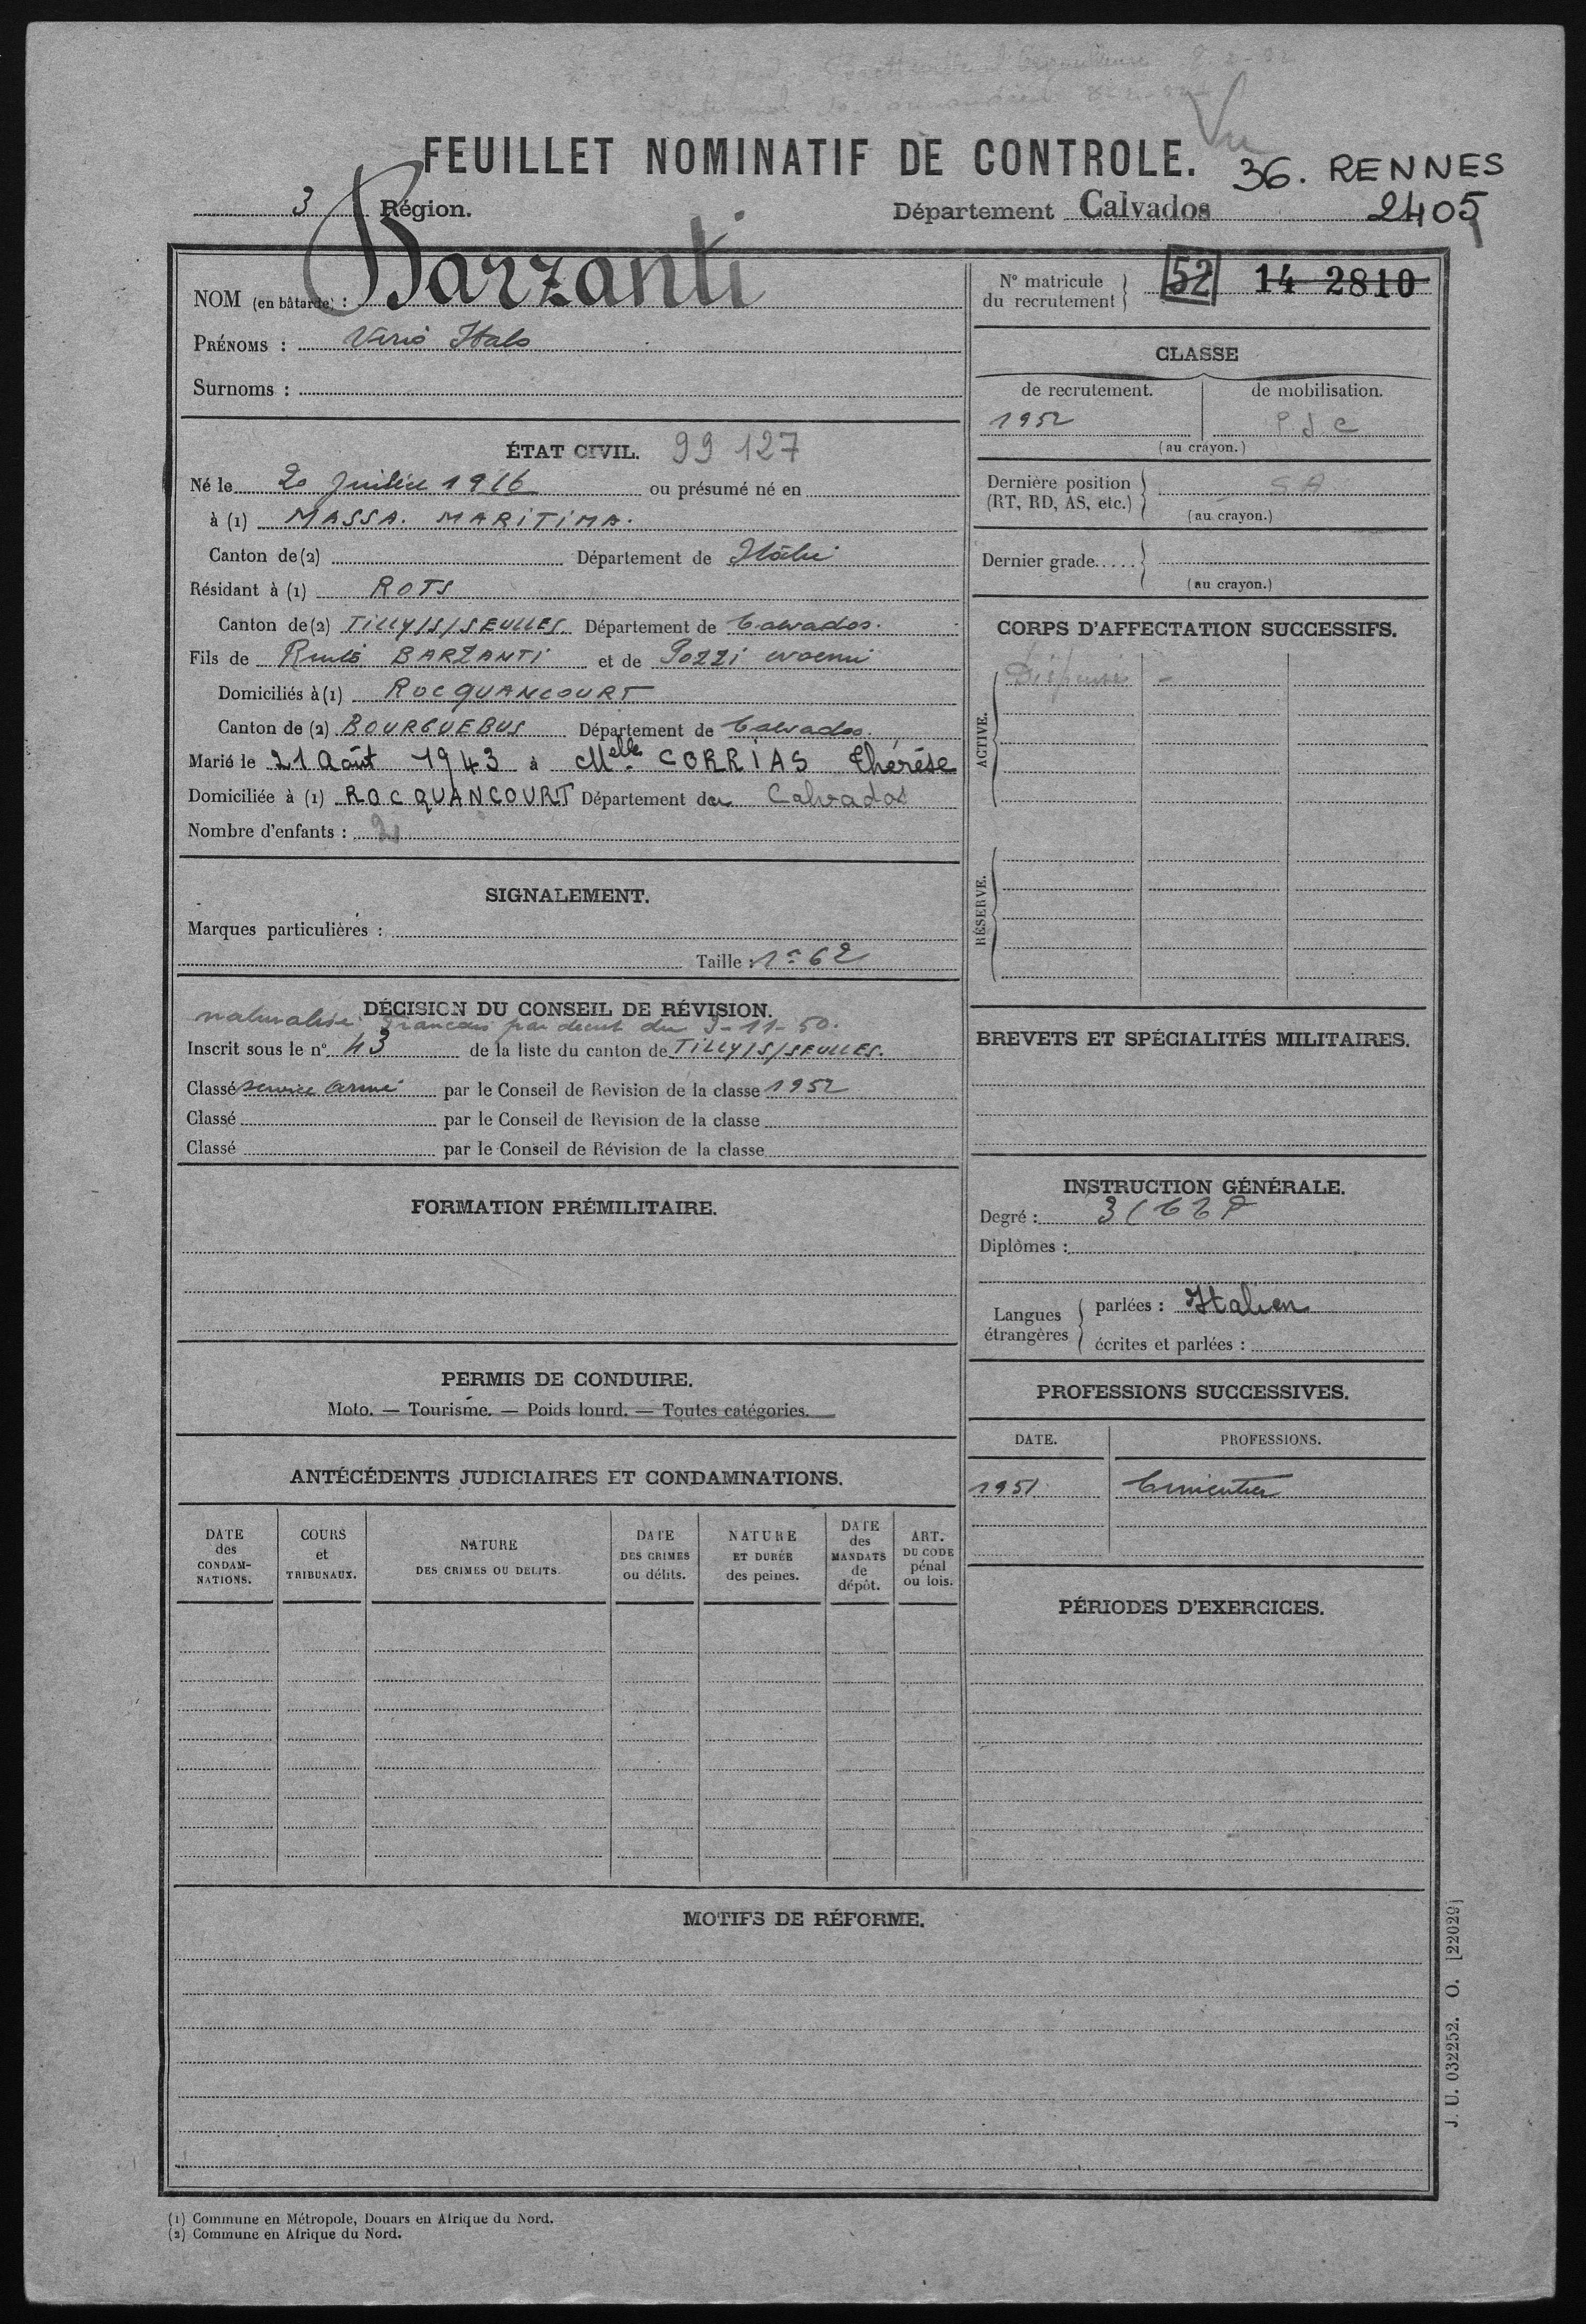 FEUILLET NOMINATIF DE CONTROLE.
Vu
36. RENNES
3 Région.
Département Calvados
2405
NOM (en bâtarde) : Barzanti
PRÉNOMS : Italo
Surnoms :
ÉTAT CIVIL. 99 127
Né le 20 Juillet 1916 ou présumé né en
à (1) MASSA. MARITIMA.
Canton de (2) Département de Italie
Résidant à (1) ROTS
Canton de (2) TILLY/S/SEULLES Département de Calvados.
Fils de BARZANTI et de Pozzi Noemi
Domiciliés à (1) ROCQUANCOURT
Canton de (2) BOURGUEBUS Département de Calvados.
Marié le 21 Août 1943 à Melle CORRIAS Thérèse
Domiciliée à (1) ROCQUANCOURT Département du Calvados
Nombre d'enfants : 2
SIGNALEMENT.
Marques particulières :
Taille : 1m 62
DÉCISION DU CONSEIL DE RÉVISION.
naturalisé Français par décret du 3-11-50.
Inscrit sous le n° 43 de la liste du canton de TILLY/S/SEULLES.
Classé service armé par le Conseil de Revision de la classe 1952
Classé par le Conseil de Revision de la classe
Classé par le Conseil de Révision de la classe
FORMATION PRÉMILITAIRE.
PERMIS DE CONDUIRE.
Moto. — Tourisme. — Poids lourd. — Toutes catégories.
ANTÉCÉDENTS JUDICIAIRES ET CONDAMNATIONS.
DATE des CONDAM-NATIONS.
COURS et TRIBUNAUX.
NATURE DES CRIMES OU DELITS.
DATE DES CRIMES ou délits.
NATURE ET DURÉE des peines.
DATE des MANDATS de dépôt.
ART. DU CODE pénal ou lois.
N° matricule du recrutement 52 14 2810
CLASSE
de recrutement. de mobilisation.
1952 P.J.C
(au crayon.)
Dernière position (RT, RD, AS, etc.) SA
(au crayon.)
Dernier grade.....
(au crayon.)
CORPS D'AFFECTATION SUCCESSIFS.
ACTIVE.
Dispensé -
RÉSERVE.
BREVETS ET SPÉCIALITÉS MILITAIRES.
INSTRUCTION GÉNÉRALE.
Degré : 3
Diplômes :
Langues étrangères
parlées : Italien
écrites et parlées :
PROFESSIONS SUCCESSIVES.
DATE. PROFESSIONS.
1951 Cimentier
PÉRIODES D'EXERCICES.
MOTIFS DE RÉFORME.
J. U. 032252. O. [22029]
(1) Commune en Métropole, Douars en Afrique du Nord.
(2) Commune en Afrique du Nord.